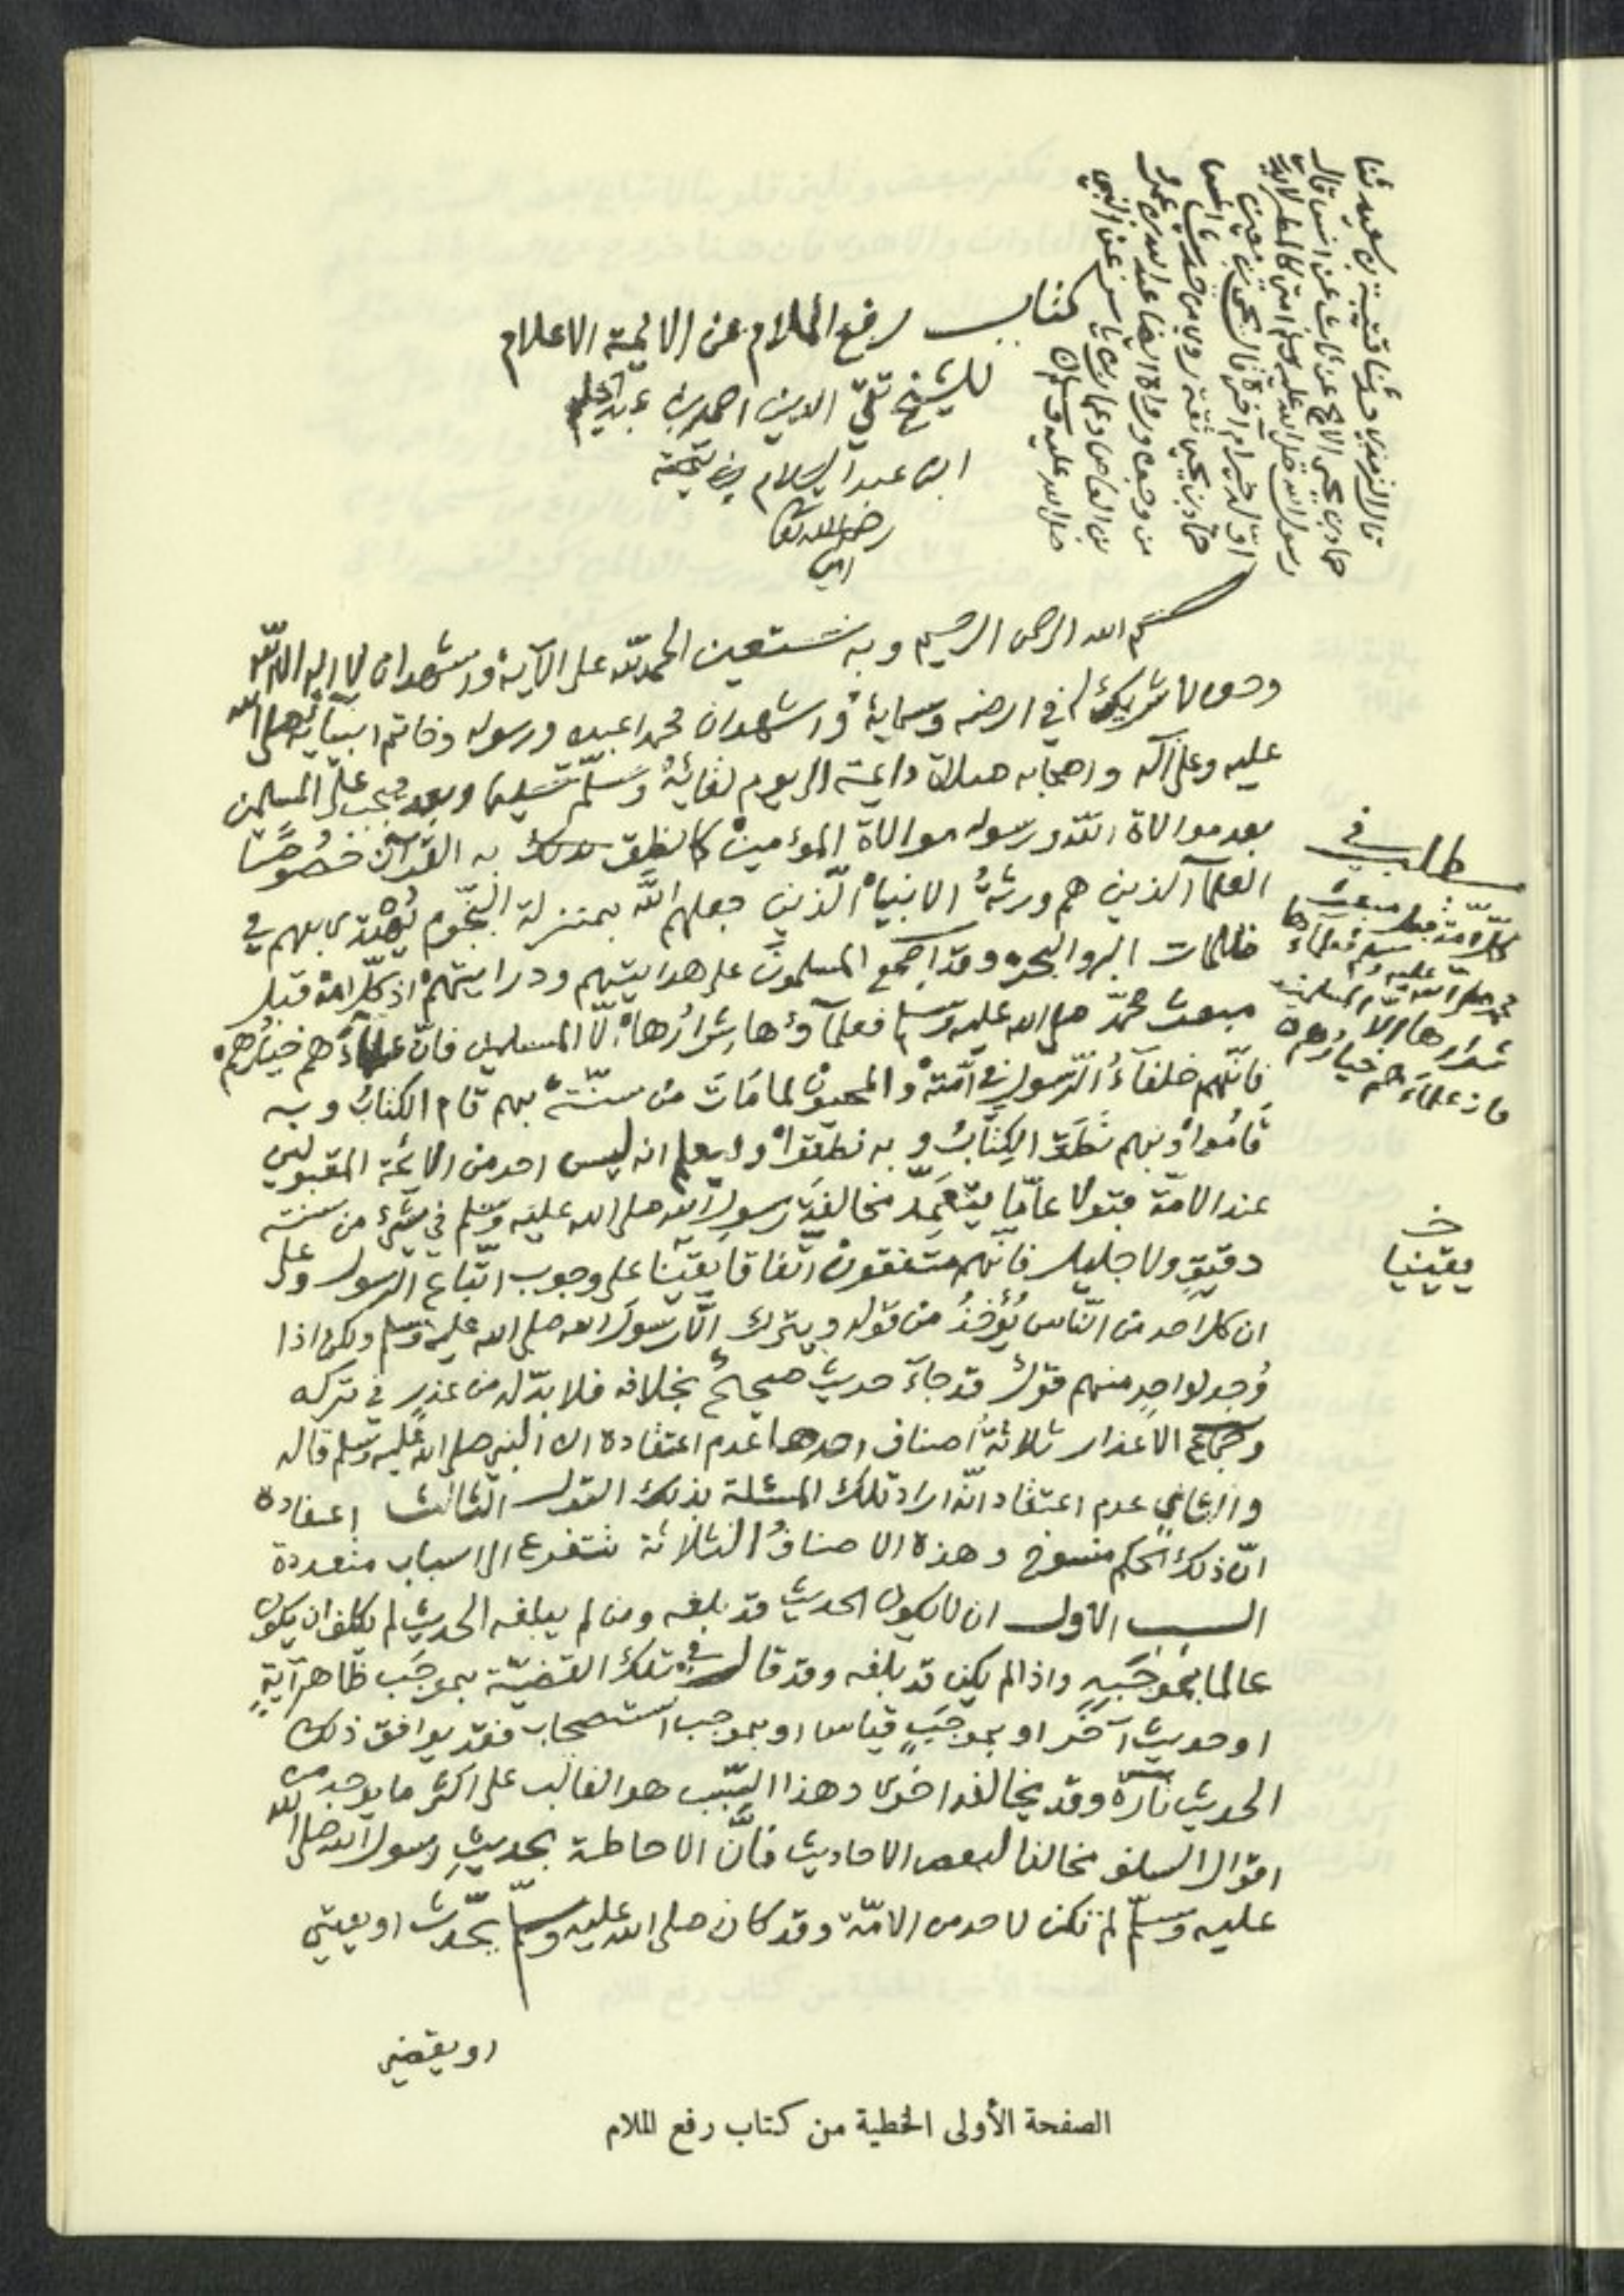 كتاب رفع الملام عن الائمة الاعلام
للشيخ تقي الدين احمد بن عبد الحليم
ابن عبد السلام بن تيمية
رضي الله تعا
امين
قال الترمذي حدثنا قتيبة بن سعيد ثنا
حماد بن يحيى الابح عن ثابت عن انس قال
رسول الله صلى الله عليه وسلم امتي كالمطر لا يدرى
اوله خير ام آخره قال
حماد بن يحيى ثقة روى من حديث
من وجه ورواه ايضا عبد الله بن عمرو
بن العاص وعمار بن ياسر عن النبي
صلى الله عليه وسلم
بسم الله الرحمن الرحيم وبه نستعين الحمد لله على الآيه واشهد ان لا اله الا الله
وحده لا شريك له في ارضه وسمايه واشهدان محمدا عبده ورسوله وخاتم انبيائه صلى الله
عليه وعلى آله واصحابه صلاة دايمة الى يوم لقائه وسلم تسليما وبعد فيجب على المسلمين
بعد موالاة الله ورسوله موالاة المؤمين كما نطق بذلك به القرآن خصوصا
العلمآ الذين هم ورثة الانبياء الذين جعلهم الله بمنزلة النجوم يهتدى بهم في
ظلمات البر والبحر وقد اجمع المسلمون على هدايتهم ودرايتهم اذ كل امة قبل
مبعث محمد صلى الله عليه وسلم فعلمآؤها شرارها الا المسلمين فان علماءهم خيارهم
فانهم خلفآء الرسول في امته والمحيون لما مات من سنته بهم قام الكتاب وبه
قاموا وبهم نطق الكتاب وبه نطقوا وليعلم انه ليس احد من الائمة المقبولين
عند الامة قبولا عاما يتعمد مخالفة رسول الله صلى الله عليه وسلم في شئ من سنته
دقيق ولا جليل فانهم متفقون اتفاقا يقينا على وجوب اتباع الرسول وعلى
ان كل احد من الناس يؤخذ من قوله ويترك الا رسول الله صلى الله عليه وسلم ولكن اذا
وجد لواحد منهم قول قد جآء حديث صحيح بخلافه فلا بد له من عذر في تركه
وجماع الاعذار ثلاثة اصناف احدها عدم اعتقاده ان النبي صلى الله عليه وسلم قاله
والثاني عدم اعتقاد انه اراد تلك المسئلة بذلك القول الثالث اعتقاده
ان ذلك الحكم منسوخ وهذه الاصناف الثلاثة تتفرع الى اسباب متعددة
السبب الاول ان لا يكون الحديث قد بلغه ومن لم يبلغه الحديث لم يكلف ان يكون
عالما بموجبه واذا لم يكن قد بلغه وقد قال في تلك القضية بموجب ظاهر آية
او حديث آخر او بموجب قياس او بموجب استصحاب فقد يوافق ذلك
الحديث تارة وقد يخالفه اخرى وهذا السبب هو الغالب على اكثر ما يوجد من
اقوال السلف مخالفا لبعض الاحاديث فان الاحاطة بحديث رسول الله صلى الله
عليه وسلم لم تكن لاحد من الامة وقد كان صلى الله عليه وسلم يحدث او يفتي
او يقضي
مطلب في
كل امة قبل مبعث
محمد صلى الله عليه وسلم فعلماءها
شرارها الا المسلمين
فان علماءهم خيارهم
خ
يقينيا
الصفحة الأولى الخطية من كتاب رفع الملام